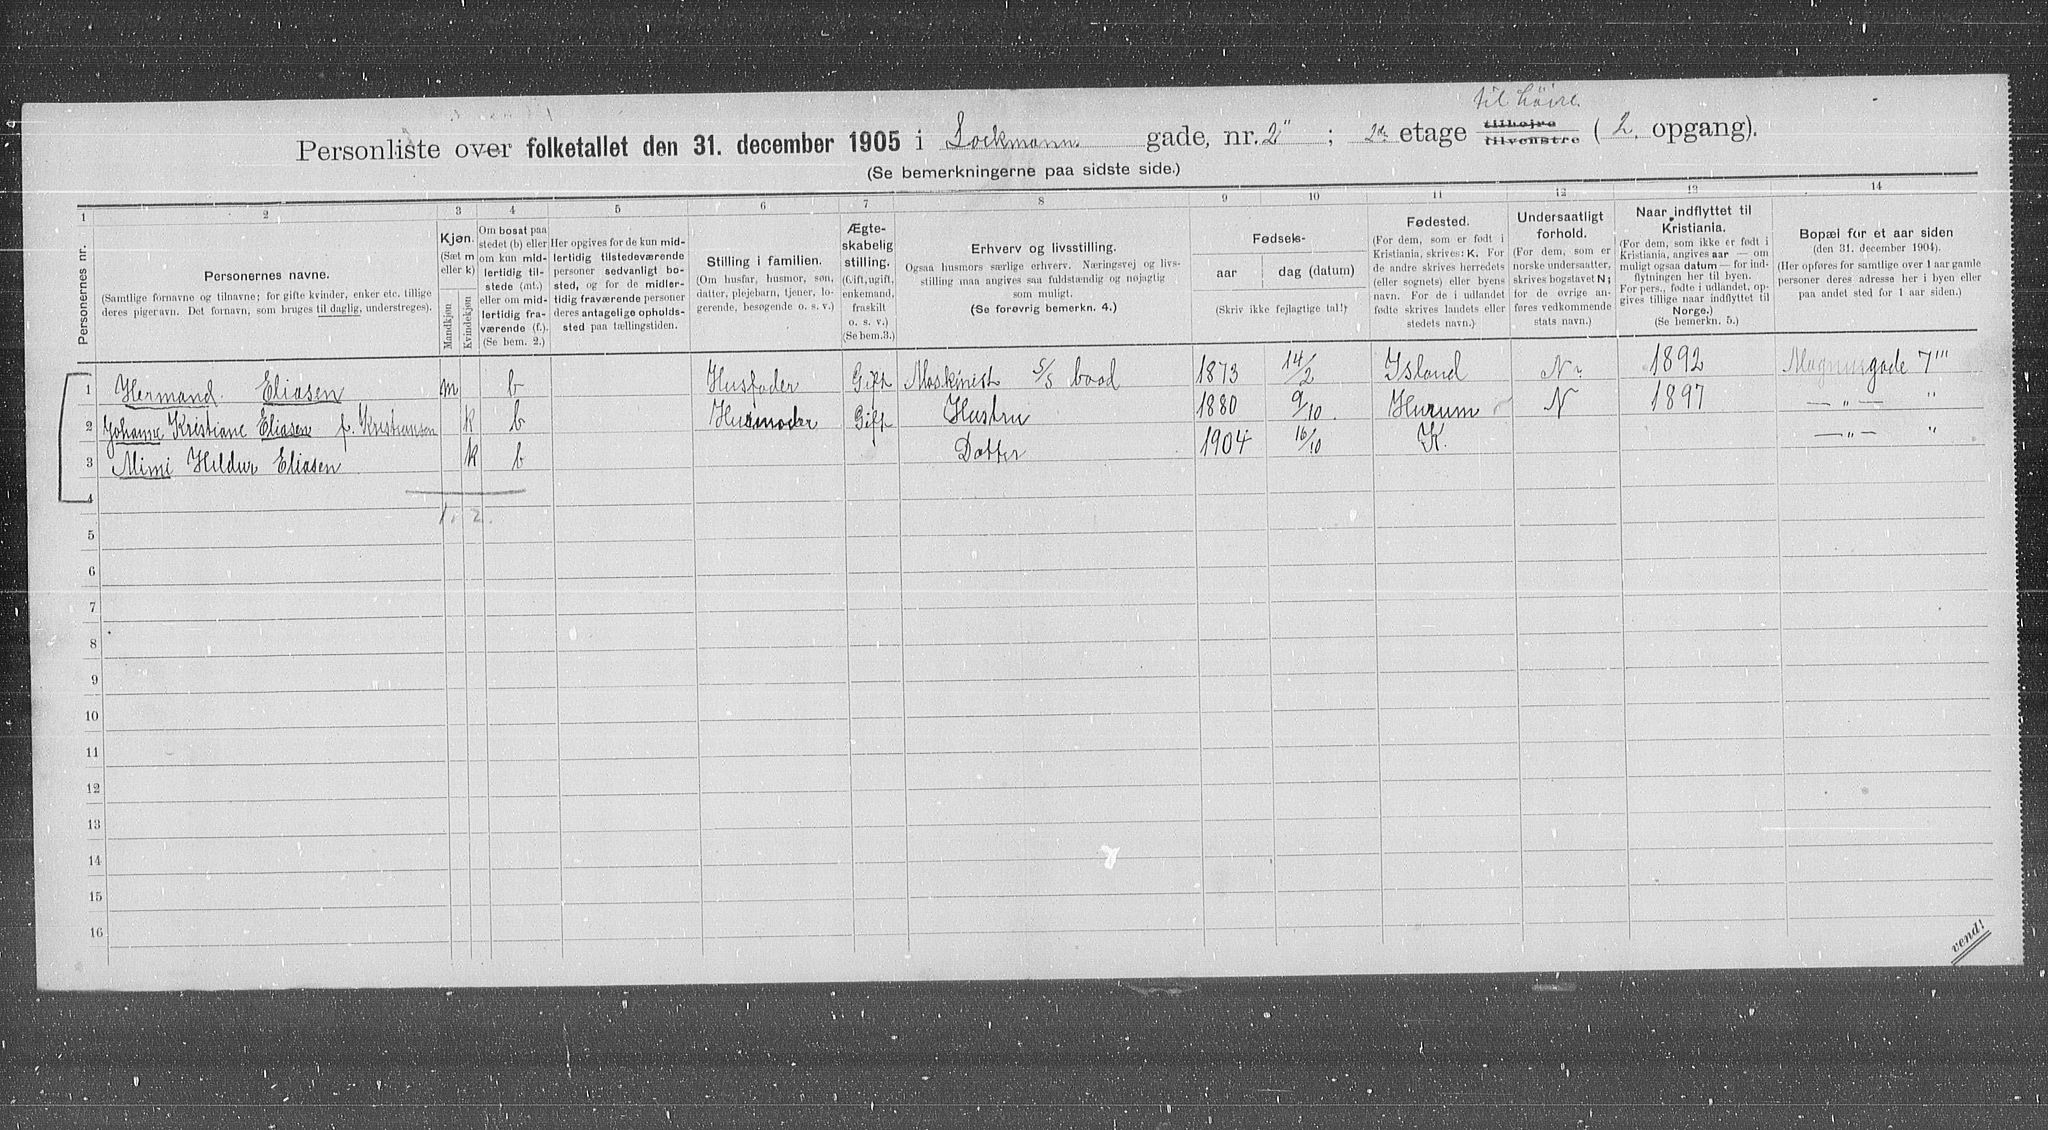 til høire.
Personliste over folketallet den 31. december 1905 i Lockmann gade, nr. 2" ; 2den etage tilhøjre tilvenstre (2. opgang).
(Se bemerkningerne paa sidste side.)
1 2 3 4 5 6 7 8 9 10 11 12 13 14
Personernes nr.
Personernes navne.
(Samtlige fornavne og tilnavne; for gifte kvinder, enker etc. tillige
deres pigenavn. Det fornavn, som bruges til daglig, understreges).
Kjøn.
(Sæt m
eller k)
Mandkjøn
Kvindekjøn
Om bosat paa
stedet (b) eller
om kun mid-
lertidig til-
stede (mt.)
eller om mid-
lertidig fra-
værende (f.).
(Se bem. 2.)
Her opgives for de kun mid-
lertidig tilstedeværende
personer sedvanligt bo-
sted, og for de midler-
tidig fraværende personer
deres antagelige opholds-
sted paa tællingstiden.
Stilling i familien.
(Om husfar, husmor, søn,
datter, plejebarn, tjener, lo-
gerende, besøgende o. s. v.)
Ægte-
skabelig
stilling.
(Gift, ugift,
enkemand,
fraskilt
o. s. v.)
(Se bem.3.)
Erhverv og livsstilling.
Ogsaa husmors særlige erhverv. Næringsvej og livs-
stilling maa angives saa fuldstændig og nøjagtig
som muligt.
(Se forøvrig bemerkn. 4.)
Fødsels-
aar dag (datum)
(Skriv ikke fejlagtige tal!)
Fødested.
(For dem, som er født i
Kristiania, skrives: K. For
de andre skrives herredets
(eller sognets) eller byens
navn. For de i udlandet
fødte skrives landets eller
stedets navn.)
Undersaatligt
forhold.
(For dem, som er
norske undersaatter,
skrives bogstavet N;
for de øvrige an-
føres vedkommende
stats navn.)
Naar indflyttet til
Kristiania.
(For dem, som ikke er født i
Kristiania, angives aar — om
muligt ogsaa datum — for ind-
flytningen her til byen.
For pers., fødte i udlandet, op-
gives tillige naar indflyttet til
Norge.)
(Se bemerkn. 5.)
Bopæl for et aar siden
(den 31. december 1904).
(Her opføres for samtlige over 1 aar gamle
personer deres adresse her i byen eller
paa andet sted for 1 aar siden.)
1 Hermand. Eliasen m b Husfader Gift Maskinist S/S baad 1873 14/2 Island N. 1892 Magnusgade 7'''
2 Johanne Kristiane Eliasen f. Kristiansen k b Husmoder Gift Hustru 1880 9/10 Hurum N 1897 — " — "
3 Mimi Hildur Eliasen k b Datter 1904 16/10 K. — " — "
4
1. 2.
5
6
7
8
9
10
11
12
13
14
15
16
vend!